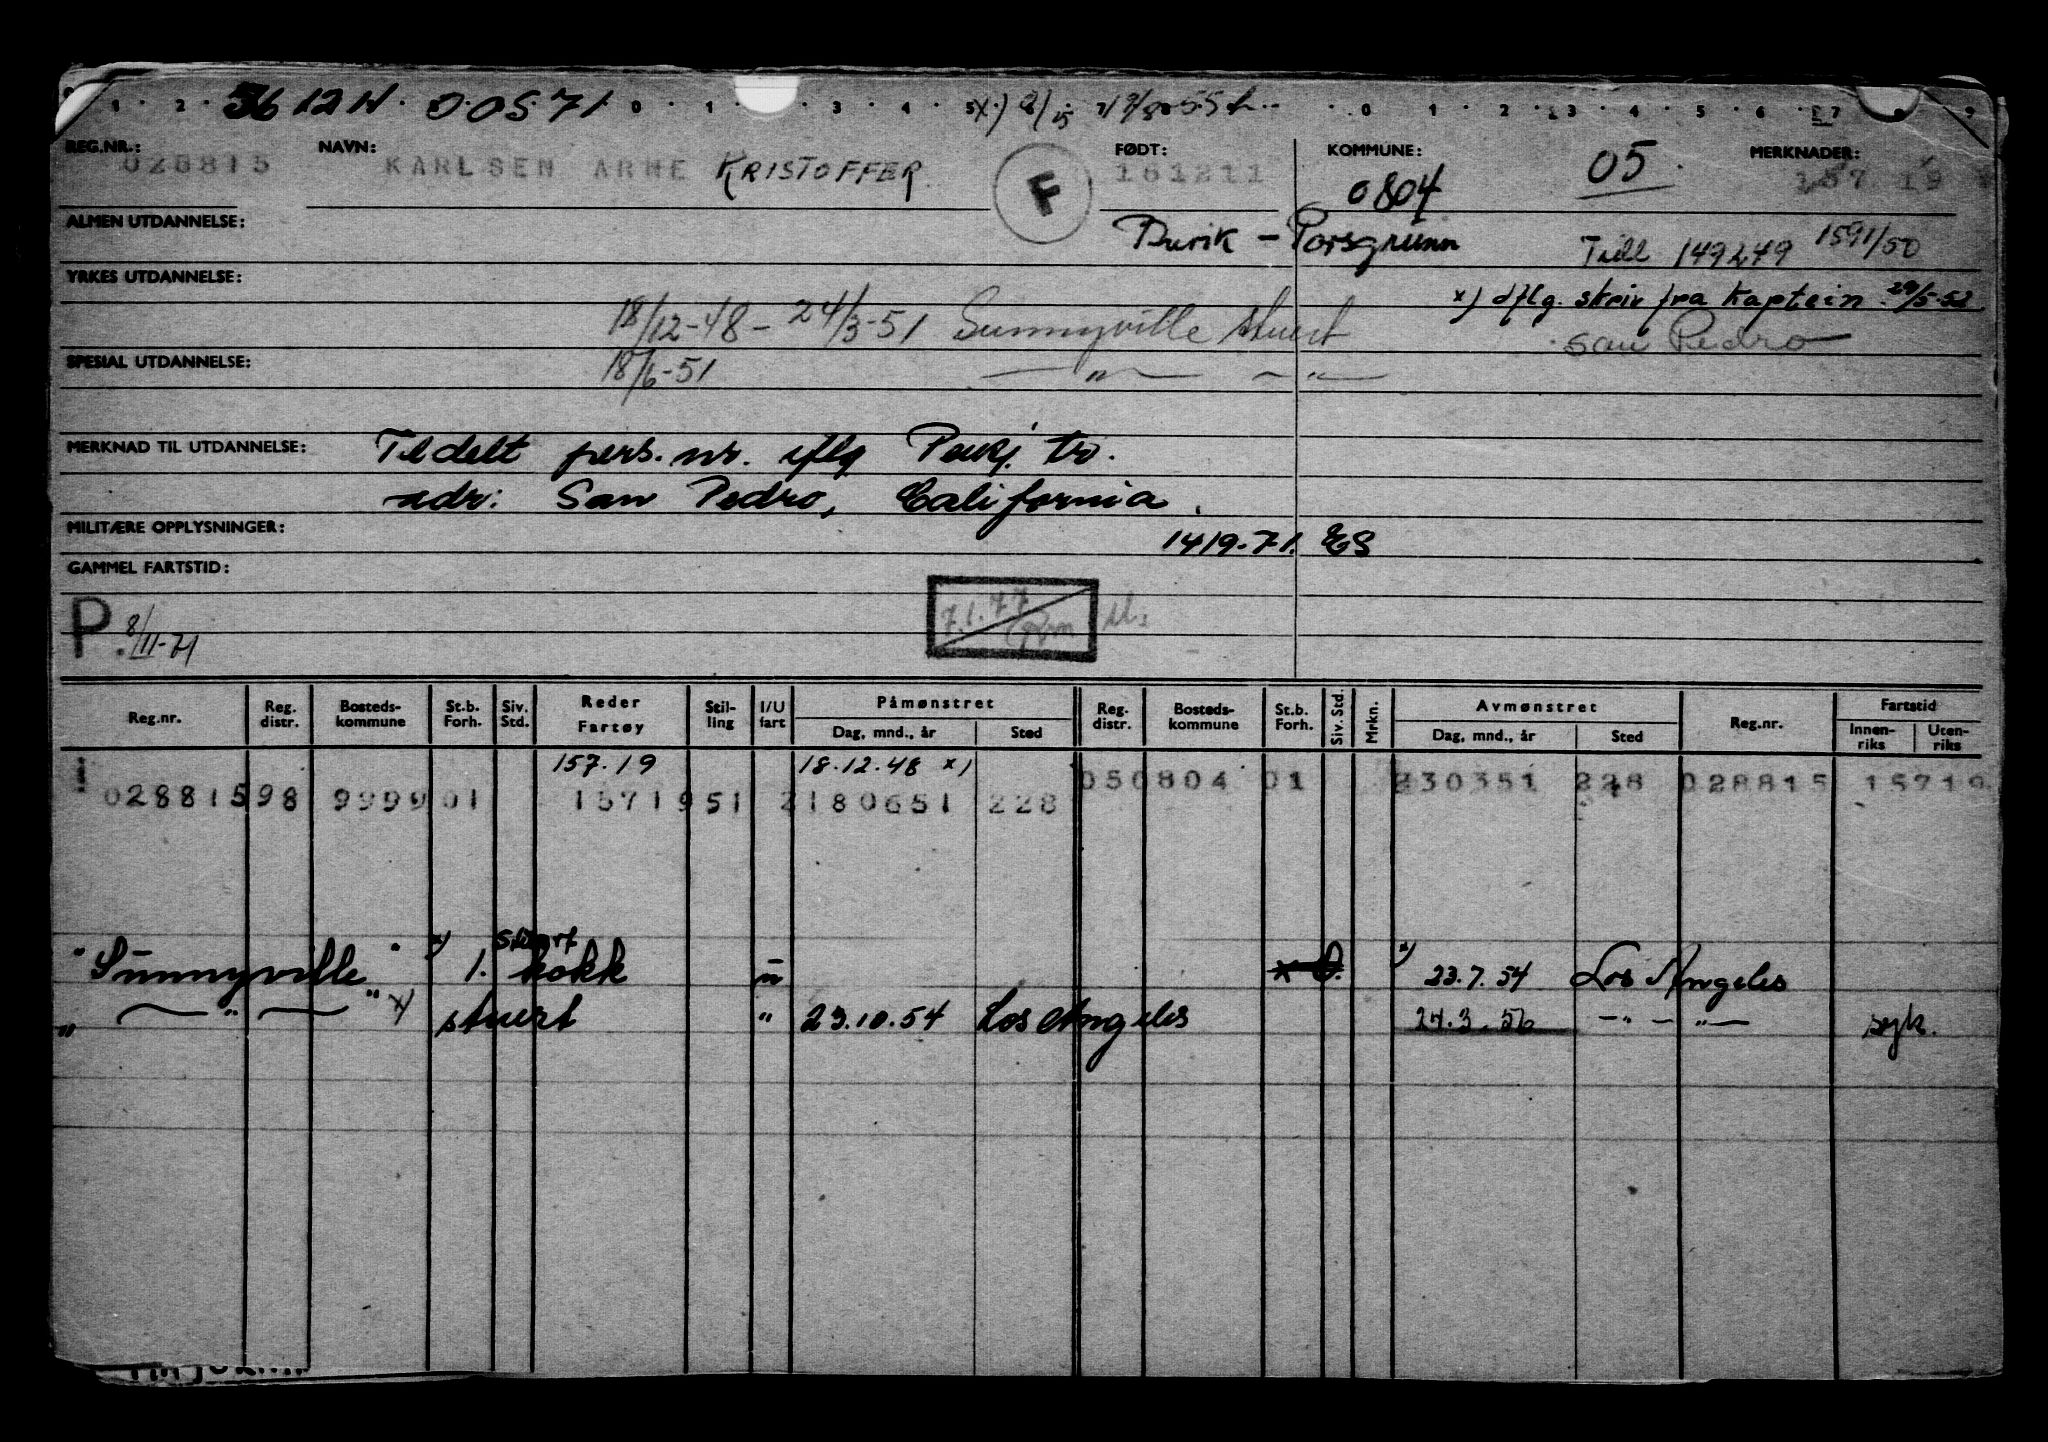 5612N. 0.05.71
REG.NR.: NAVN: FØDT: KOMMUNE: MERKNADER:
028815 KARLSEN ARNE KRISTOFFER F 181211 0804 05 157 19
ALMEN UTDANNELSE: Porsgrunn Till 149249 1591/50
YRKES UTDANNELSE: x) iflg. skriv fra Kaptein 29/5-52
18/12-48 - 24/3-51 Sunnyville stuert San Pedro
SPESIAL UTDANNELSE: 18/6-51 — " — — " —
MERKNAD TIL UTDANNELSE: Tildelt pers. nr. iflg
adr: San Pedro, California.
MILITÆRE OPPLYSNINGER: 1419.71. ES
GAMMEL FARTSTID:
P. 8/11-71 7.1.77
Reg.nr. Reg. distr. Bosteds-kommune St.b. Forh. Siv. Std. Reder Fartøy Stil-ling I/U fart Påmønstret Dag, mnd., år Sted Reg. distr. Bosteds-kommune St.b. Forh. Siv. Std. Mrkn. Avmønstret Dag, mnd., år Sted Reg.nr. Fartstid Innen-riks Uten-riks
157.19 18.12.48 x) 050804 01 230351 228 028815 15719
028815 98 9999 01 15719 51 2 180651 228
"Sunnyville" x) 1. stuert kokk u x) 23.7.54 Los Angeles
" — " — " x) stuert " 23.10.54 Los Angeles 24.3.56 — " — " — syk.